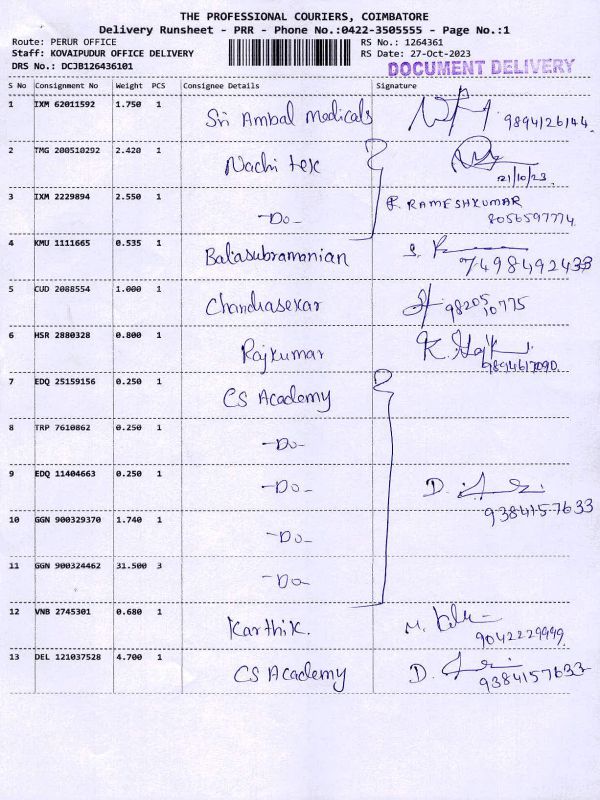 THE PROFESSIONAL COURIERS, COIMBATORE
Delivery Runsheet - PRR - Phone No.:0422-3505555 - Page No.:1
Route: PERUR OFFICE RS No.: 1264361
Staff: KOVAIPUDUR OFFICE DELIVERY RS Date: 27-Oct-2023
DRS No.: DCJB126436101 DOCUMENT DELIVERY
S No Consignment No Weight PCS Consignee Details Signature
1 IXM 62011592 1.750 1 Sri Ambal Medicals 9894126144
2 TMG 200510292 2.420 1 Nachi tex
21/10/23
3 IXM 2229894 2.550 1 -Do- P. RAMESHKUMAR
8056597774
4 KMU 1111665 0.535 1 Balasubramanian
7498492433
5 CUD 2088554 1.000 1 Chandrasekar 98205
10775
6 HSR 2880328 0.800 1 Rajkumar
9894617090
7 EDQ 25159156 0.250 1 CS Academy
8 TRP 7610862 0.250 1 -Do-
9 EDQ 11404663 0.250 1 -Do- D.
9384157633
10 GGN 900329370 1.740 1 -Do-
11 GGN 900324462 31.500 3 -Do-
12 VNB 2745301 0.680 1 Karthik. M.
9042229999
13 DEL 121037528 4.700 1 CS Academy D.
9384157633